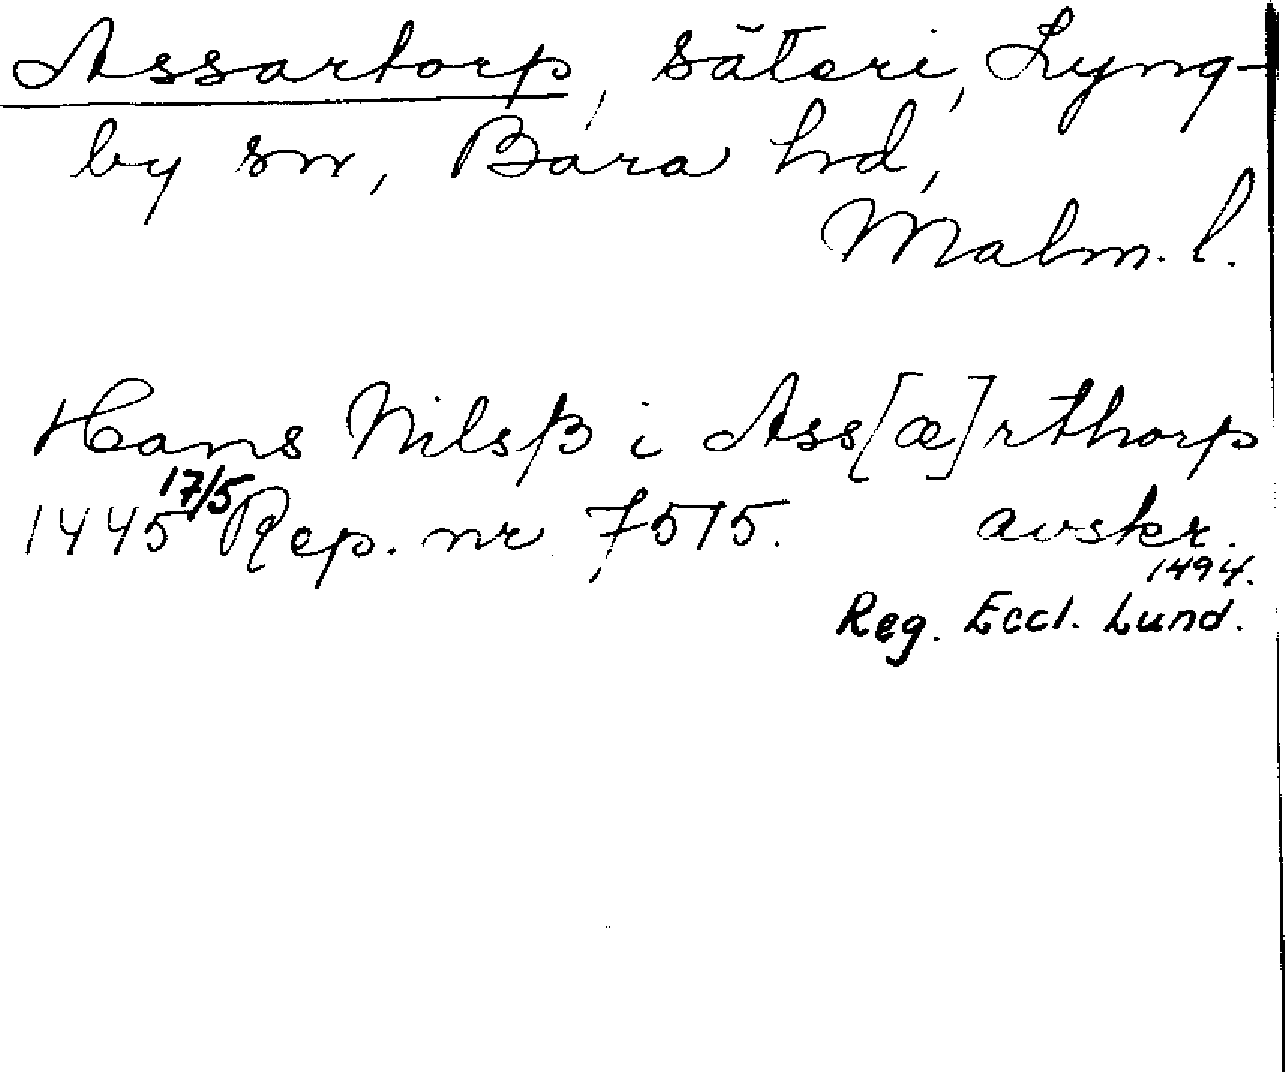 Assartorp, säteri, Lyng-
by sn, Bara hd,
Malm. l.
Hans Nilsβ i Ass[æ]rthorp
1445 17/5 Rep. nr 7515. avskr.
1494.
Reg. Eccl. Lund.